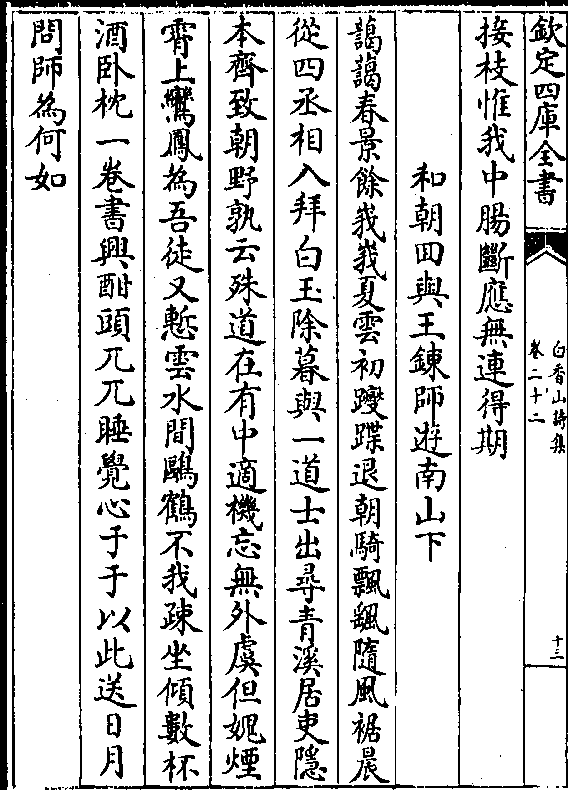 欽定四庫全書
白香山詩集
卷二十二
十三
接枝惟我中腸斷應無連得期
和朝回與王鍊師遊南山下
藹藹春景餘峩峩夏雲初躞蹀退朝騎飄颻隨風裾晨
從四丞相入拜白玉除暮與一道士出尋青溪居吏隱
本齊致朝野孰云殊道在有中適機忘無外虞但媿煙
霄上鸞鳳為吾徒又慙雲水間鷗鶴不我疎坐傾數杯
酒卧枕一卷書興酣頭兀兀睡覺心于于以此送日月
問師為何如